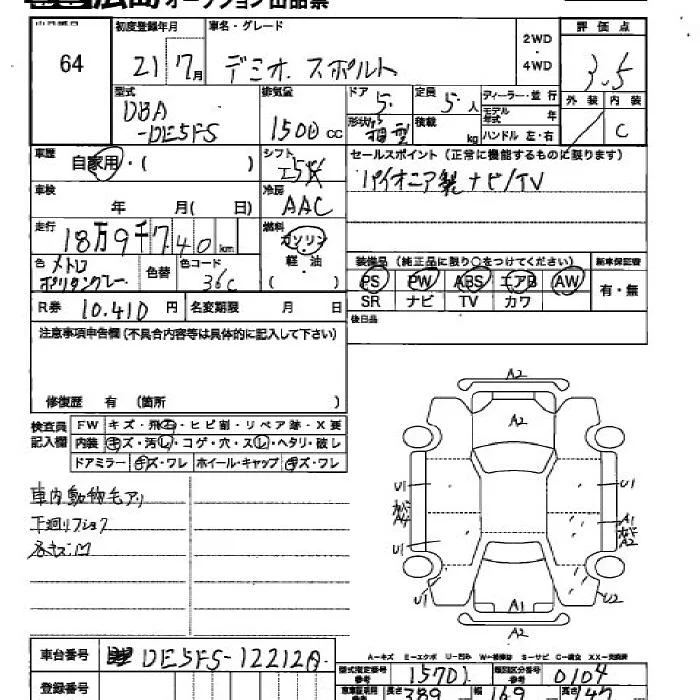 広島オークション出品票
64
初度登録年月
21年7月
車名・グレード
デミオ スポルト
2WD
・
4WD
評価点
3.5
外装 内装
C
型式
DBA
-DE5FS
排気量
1500 CC
ドア
5
形状
定員
5人
積載
kg
ディーラー・並行
モデル年式 年
ハンドル 左・右
車歴
自家用・( )
シフト
冷房
AAC
セールスポイント (正常に機能するものに限ります)
パイオニア製 ナビ/TV
車検
年 月( 日)
走行
18万9千740km
燃料
ガソリン
軽・油
( )
色
メトロ
ポリタングレー
色替
色コード
36C
装備品 (純正品に限り○をつけてください)
PS PW ABS エアB AW
SR ナビ TV カワ
新車保証書
有・無
R券 10.410 円
名変期限 月 日
後日品
注意事項申告欄 (不具合内容等は具体的に記入して下さい)
修復歴 有 (箇所 )
検査員
記入欄
FW キズ・飛石・ヒビ割・リペア跡・X要
内装 キズ・汚レ・コゲ・穴・スレ・ヘタリ・破レ
ドアミラー キズ・ワレ ホイール・キャップ キズ・ワレ
車内動物毛アリ
下廻リ
A2
A2
U1
U1
A4
A1
A2
U1
U1
U2
A1
A2
A-キズ E-エクボ U-凹み W-補修跡 S-サビ C-腐食 XX-交換済
車台番号
DE5FS-122120
登録番号
型式指定番号
参考
15701
類別区分番号
参考
0104
長さ 389
幅 169
高さ 147